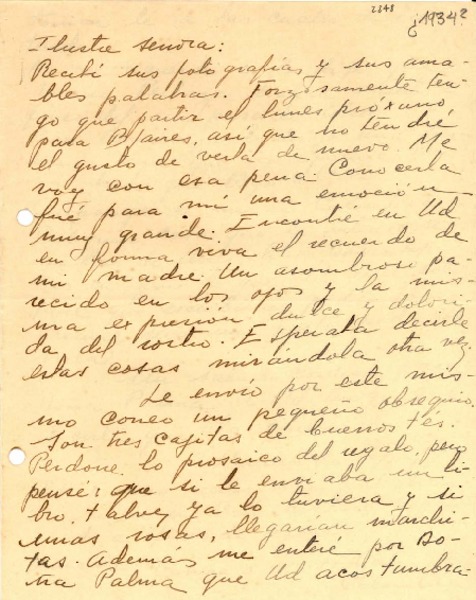 2348
¿1934?
Ilustre señora:
Recibí sus fotografías y sus ama-
bles palabras. Forzosamente ten-
go que partir el lunes próximo,
para B/aires, así que no tendré
el gusto de verla de nuevo. Me
voy con esa pena. Conocerla
fué para mí una emoción
muy grande. Encontré en Ud
en forma viva el recuerdo de
mi madre. Un asombroso pa-
recido en los ojos y la mis-
ma expresión dulce y dolori-
da del rostro. Esperaba decirle
estas cosas mirándola otra vez.
Le envío por este mis-
mo correo un pequeño obsequio.
Son tres cajitas de buenos tés.
Perdone lo prosaico del regalo, pero
pensé: que si le enviaba un li-
bro, talvez ya lo tuviera y si
unas rosas, llegarían marchi-
tas. Además me enteré por Do-
ña Palma que Ud acostumbra-